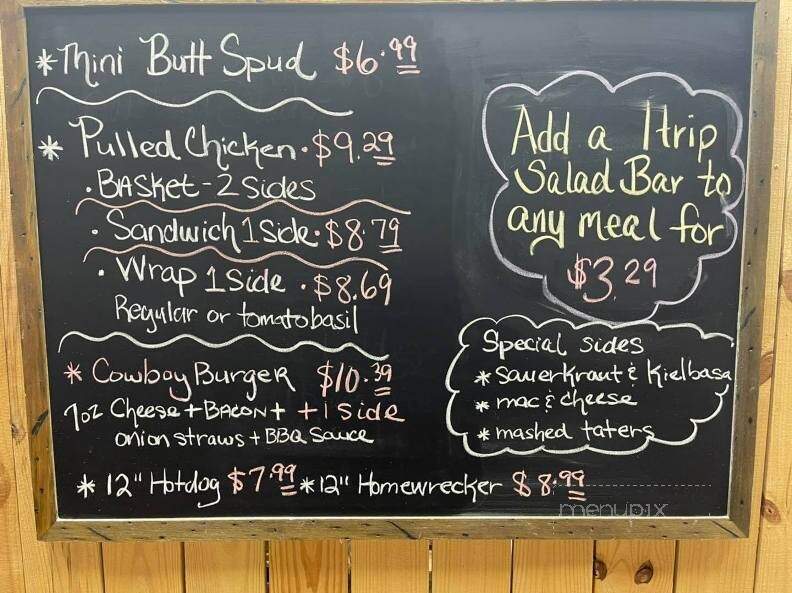 *Mini Butt Spud $6.99
* Pulled Chicken · $9.29
· BASket - 2 Sides
· Sandwich 1 Side · $8.79
· Wrap 1 Side · $8.69
Regular or tomatobasil
* Cowboy Burger $10.39
7oz Cheese + BACON + + 1 Side
onion straws + BBQ Sauce
* 12" Hotdog $7.99 * 12" Homewrecker $8.99
Add a 1 trip
Salad Bar to
any meal for
$3.29
Special sides
* Sauerkraut & Kielbasa
* mac & cheese
* mashed taters
menupix